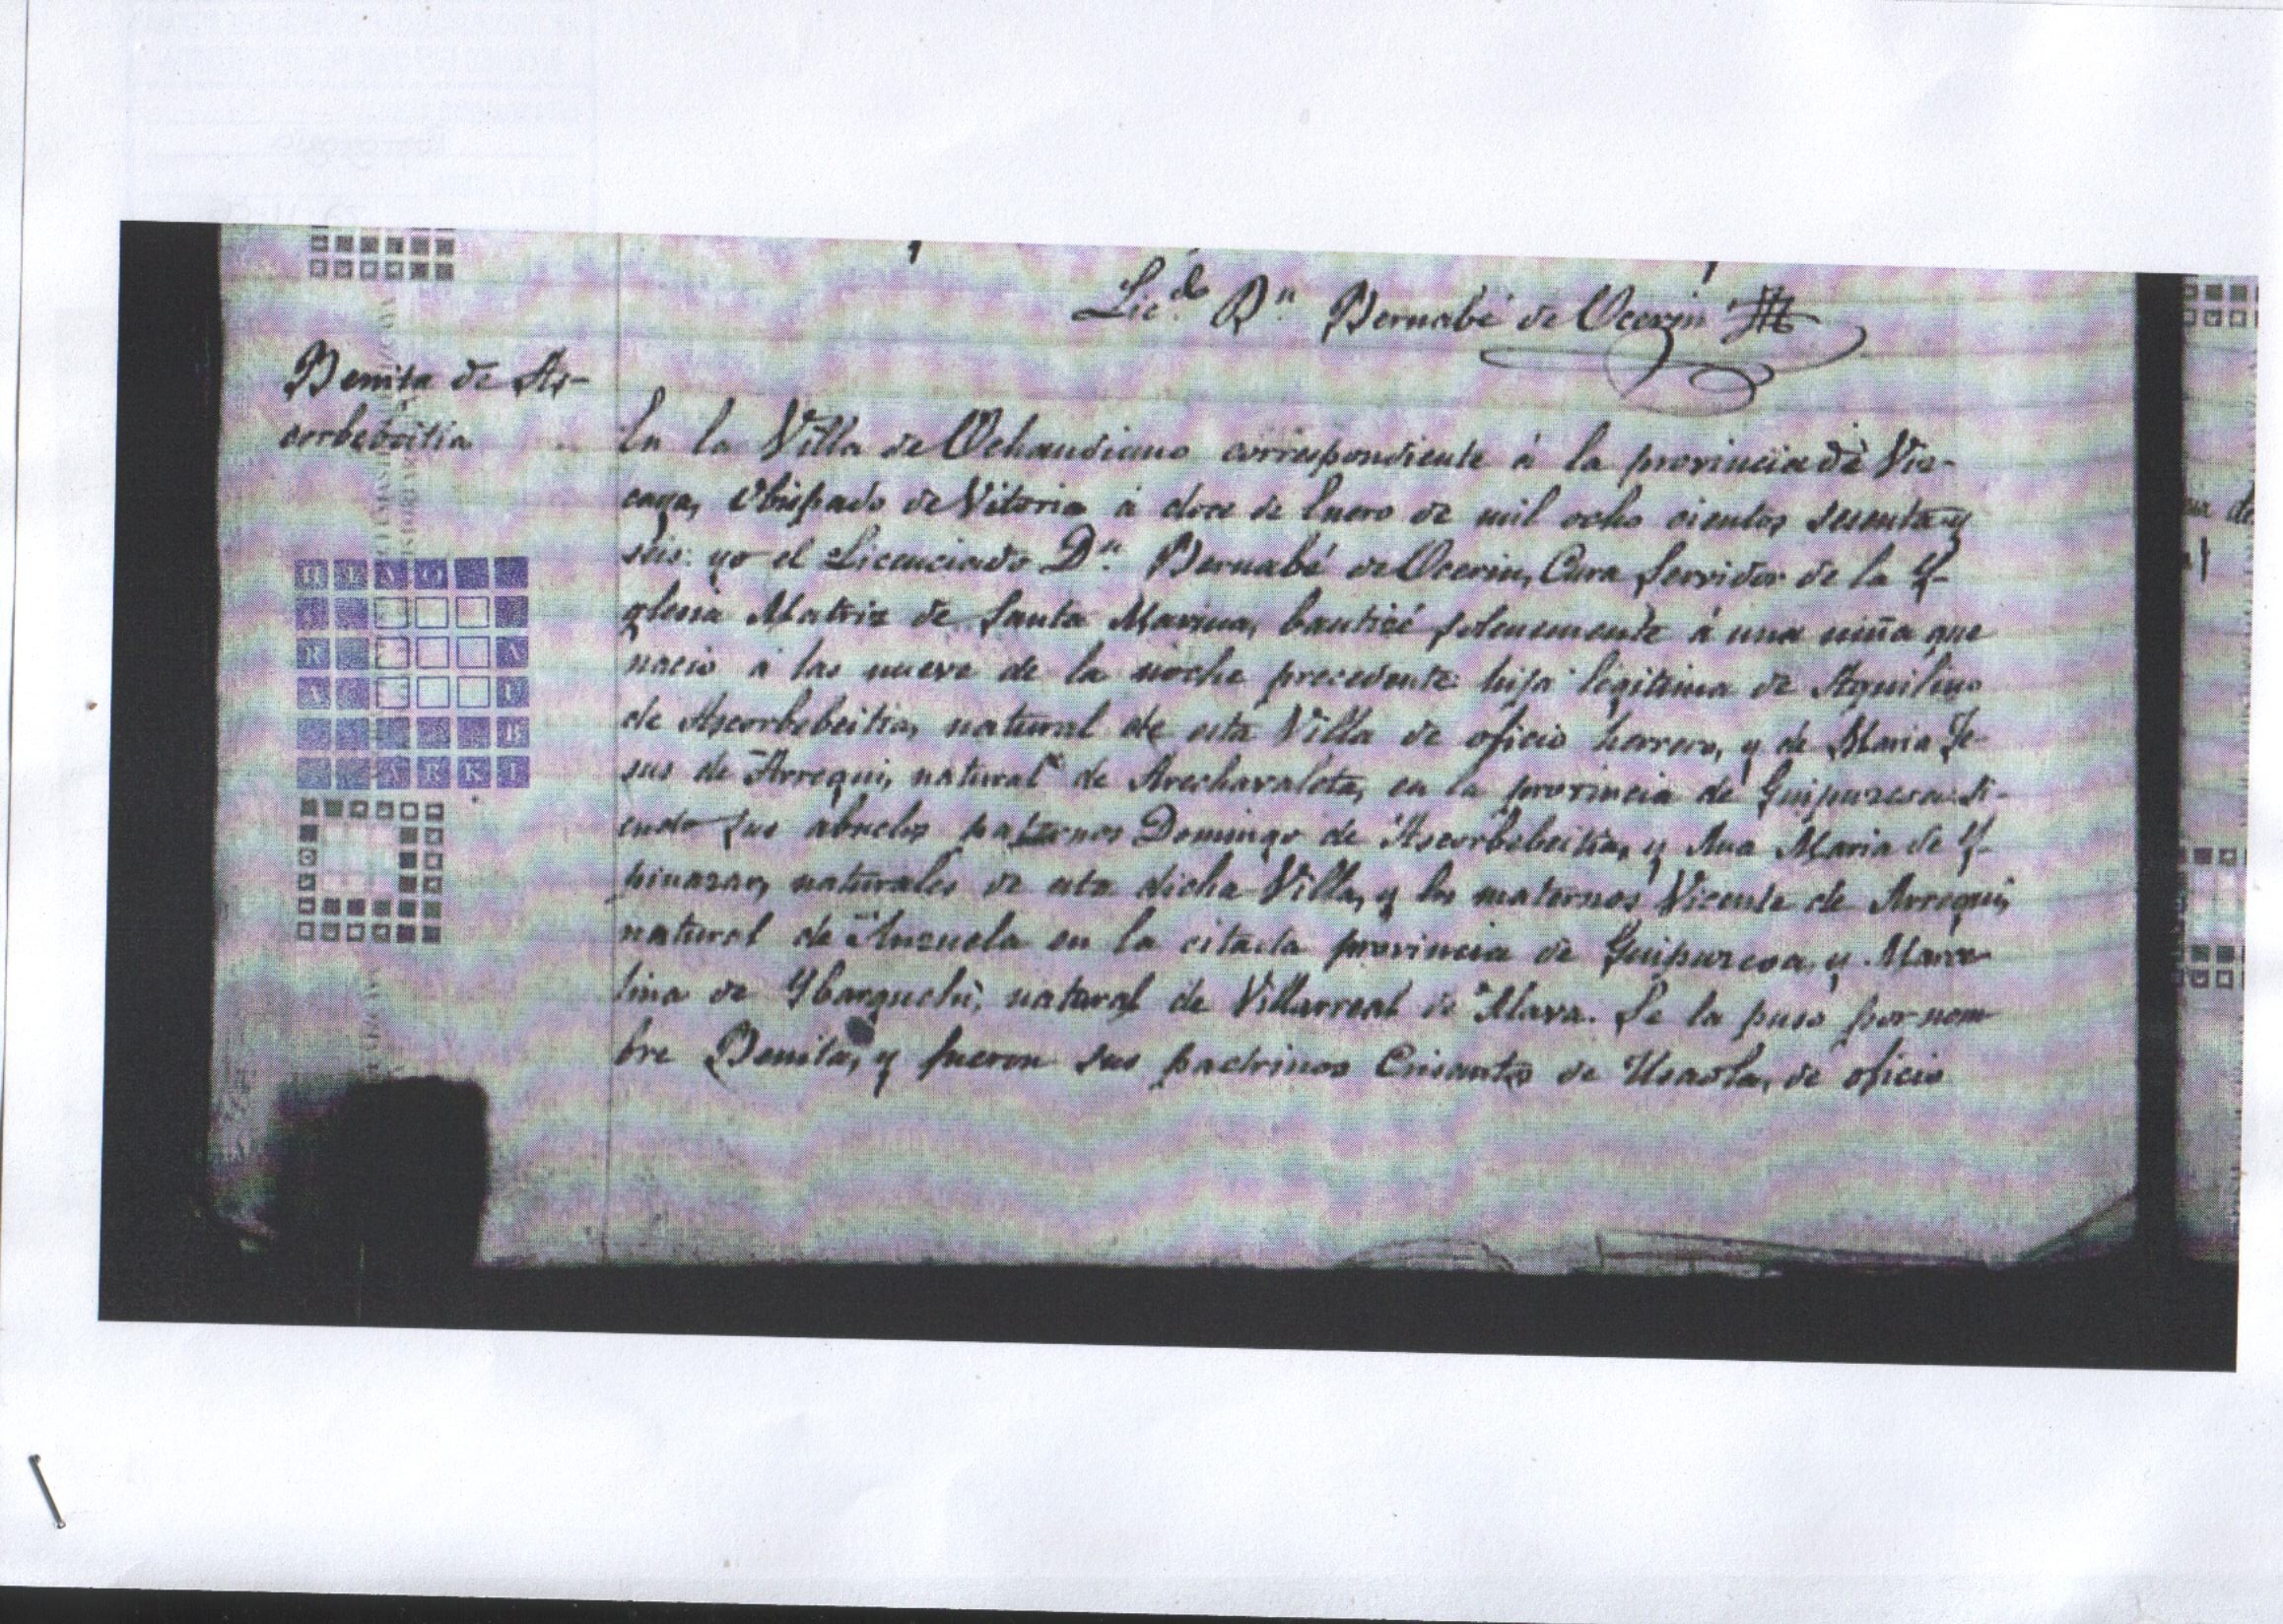 Licdo Dn Bernabé de Ocerin
Benita de As-
corbebeitia
En la Villa de Ochandiano correspondiente á la provincia de Viz-
caya, Obispado de Vitoria á doce de Enero de mil ocho cientos sesenta y
seis: yo el Licenciado Dn Bernabé de Ocerin, Cura Servidor de la Y-
glesia Matriz de Santa Marina, bauticé solemnemente á una niña que
nació á las nueve de la noche precedente: hija legitima de Aquilino
de Ascorbebeitia, natural de esta Villa de oficio herrero, y de Maria Je-
sus de Arregui, natural de Arechavaleta, en la provincia de Guipuzcoa: si-
endo sus abuelos paternos Domingo de Ascorbebeitia, y Ana Maria de Y-
pinazar, naturales de esta dicha Villa, y los maternos Vicente de Arregui,
natural de Anzuola en la citada provincia de Guipuzcoa, y Marce-
lina de Ybarguchi, natural de Villarreal de Alava. Se la puso por nom
bre Benita, y fueron sus padrinos Crisanto de Usaola, de oficio